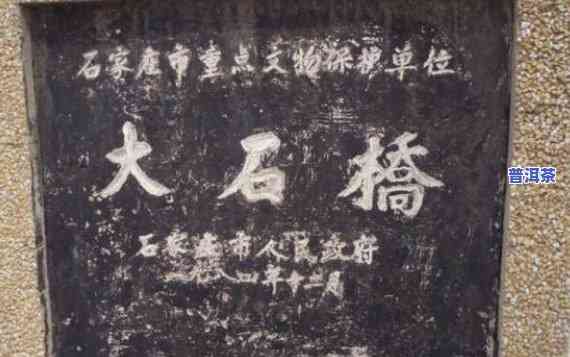 石家庄市重点文物保护单位
大石橋
石家庄市人民政府
一九八四年十二月
普洱茶